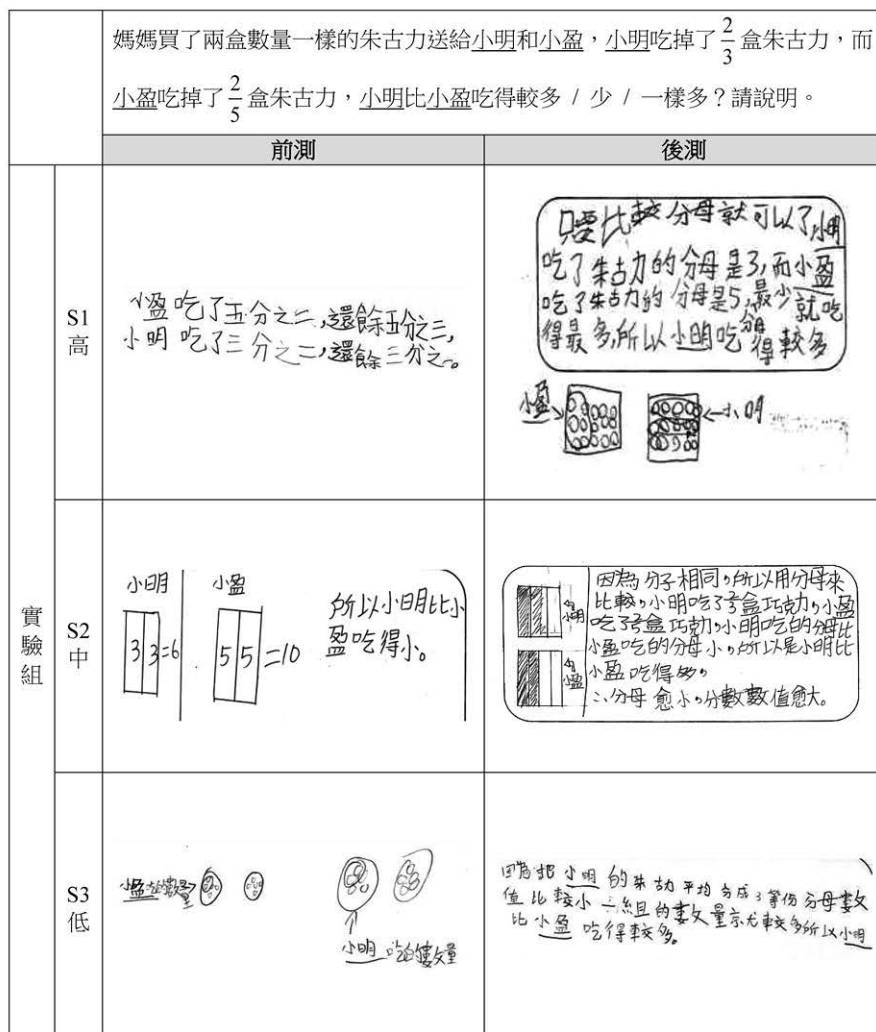 媽媽買了兩盒數量一樣的朱古力送給小明和小盈，小明吃掉了 2/3 盒朱古力，而
小盈吃掉了 2/5 盒朱古力，小明比小盈吃得較多 / 少 / 一樣多？請說明。
前測
後測
實驗組
S1
高
小盈吃了五分之二,還餘五分之三,
小明吃了三分之二,還餘三分之一。
只要比較分母就可以了,小明
吃了朱古力的分母是3,而小盈
吃了朱古力的分母是5,最少分母就吃
得最多,所以小明吃得較多
小盈
小明
S2
中
小明
3 3 =6
小盈
5 5 =10
所以小明比小
盈吃得小。
因為分子相同,所以用分母來
比較,小明吃了2/3盒巧克力,小盈
吃了2/5盒巧克力,小明吃的分母比
小盈吃的分母小,所以是小明比
小盈吃得多。
∴分母愈小,分數數值愈大。
小明
小盈
S3
低
小盈吃的數量
小明吃的數量
因為把小明的朱古力平均分成3等份分母數
值比較小一組的數量就較多所以小明
比小盈吃得較多。